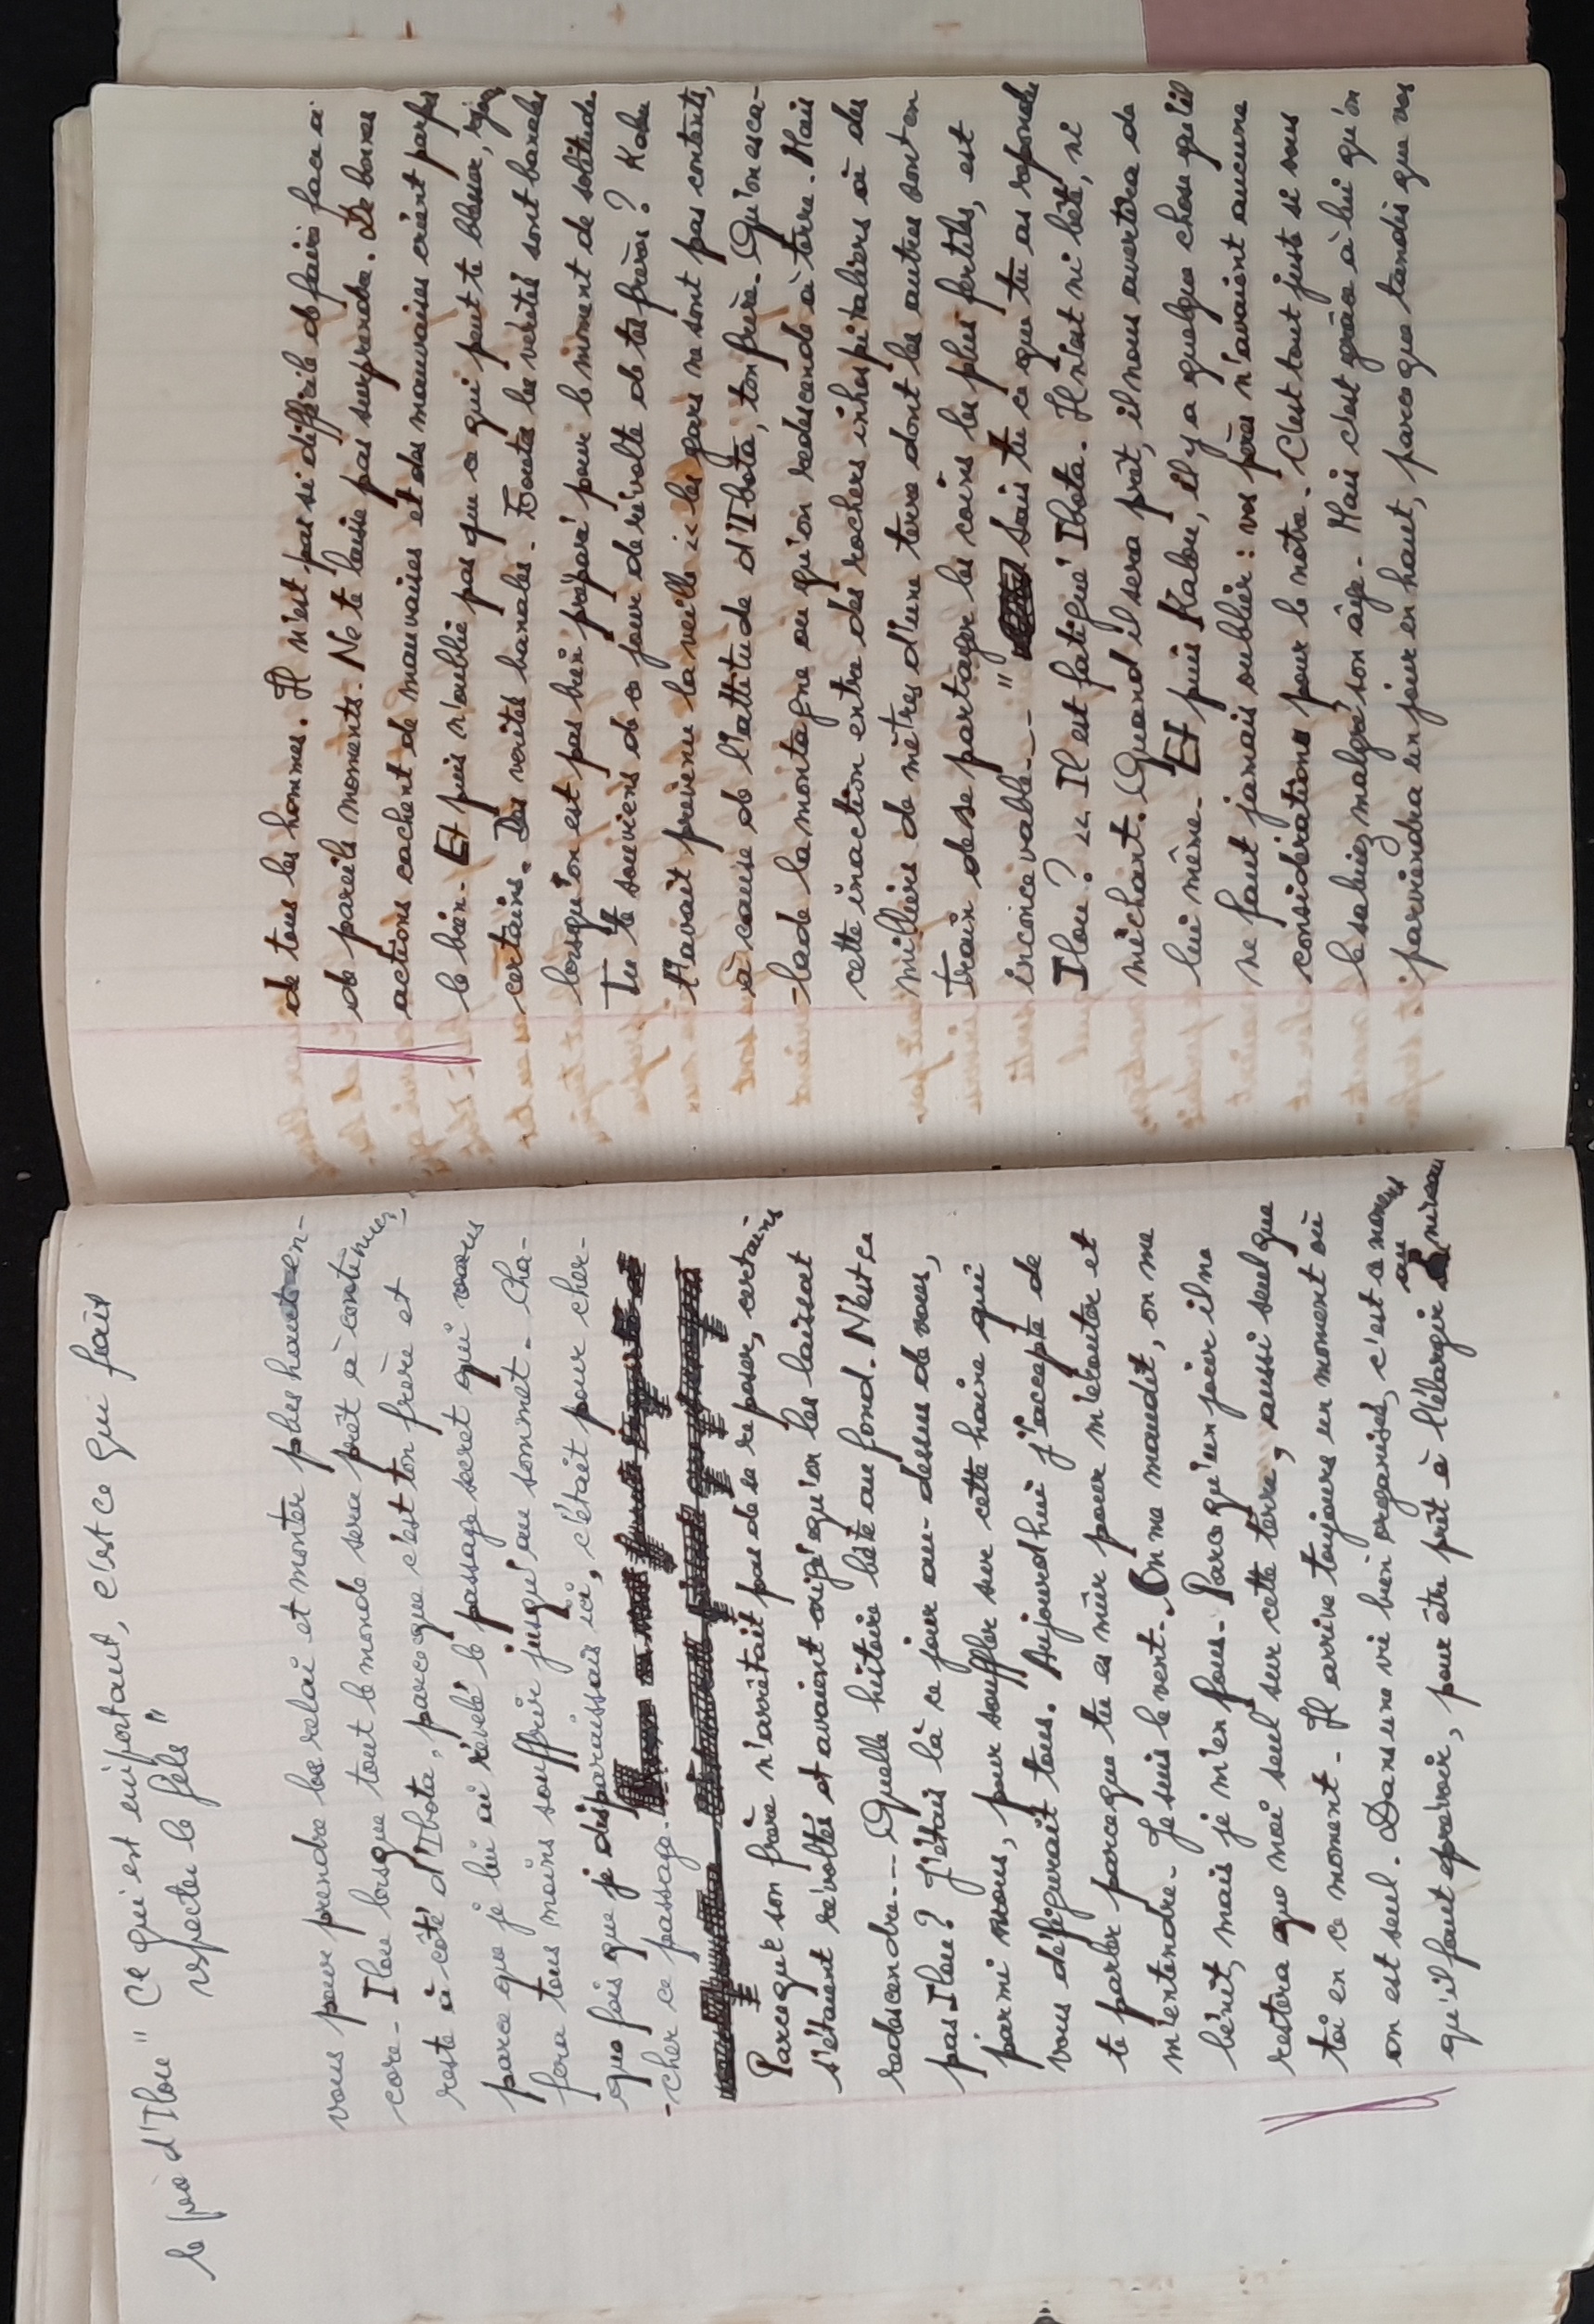 le père d'Ilou " Ce qui est important, c'est ce qui fait
respecter le fils"
vous pour prendre les relai et monter plus haut en-
core - Ilou lorsque tout le monde sera prêt à continuer,
reste à côté d'Ibota, parce que c'est ton frère et
parce que je lui ai révélé le passage secret qui vous
fera tous moins souffrir jusqu'au sommet - Cha-
que fois que je disparaissais ici, c'était pour cher-
-cher ce passage.
Parce que son frère n'arrêtait pas de se reposer, certains
s'étaient révoltés et avaient exigé qu'on les laissat
redescendre --- Quelle histoire bête au fond. N'est ce
pas Ilou? J'étais là ce jour au-dessus de vous,
parmi vous, pour souffler sur cette haine qui
vous défigurait tous. Aujourd'hui j'accepte de
te parler parce que tu es mûr pour m'écouter et
m'entendre - Je suis le vent. On me maudit, on me
bénit, mais je m'en fous - Parce qu'un jour il ne
restera que moi seul sur cette terre, aussi seul que
toi en ce moment - Il arrive toujours un moment où
on est seul. Dans une vie bien organisée, c'est ce moment
qu'il faut prévoir, pour être prêt à l'élargir au niveau
de tous les hommes. Il n'est pas si difficile de faire face à
de pareils moments. Ne te laisse pas surprendre. De bonnes
actions cachent de mauvaises et des mauvaises créent parfois
le bien - Et puis n'oublie pas que ce qui peut te blesser,
certains. Des vérités banales - Toutes les vérités sont banales
lorsqu'on est pas bien préparé pour le moment de solitude
Tu te souviens de ce jour de révolte de tes frères? Kalou
t'avait prévenu la veille << les gars ne sont pas contents,
à cause de l'attitude d'Ibota, ton frère - Qu'on esca-
-lade la montagne ou qu'on redescende à terre - Mais
cette inaction entre des rochers inhospitaliers à des
milliers de mètres d'une terre dont les autres sont en
train de se partager les coins les plus fertiles, est
inconcevable --- " Sais tu ce que tu as répondu
Ilou? << Il est fatigué Ibota. Il n'est ni bête, ni
méchant. Quand il sera prêt, il nous avertira de
lui même - Et puis Kalou, il y a quelque chose qu'il
ne faut jamais oublier : vos pères n'avaient aucune
considérations pour le nôtre - C'est tout juste si vous
le saluiez malgré son âge - Mais c'est grâce à lui qu'on
parviendra un jour en haut, parce que tandis que vos